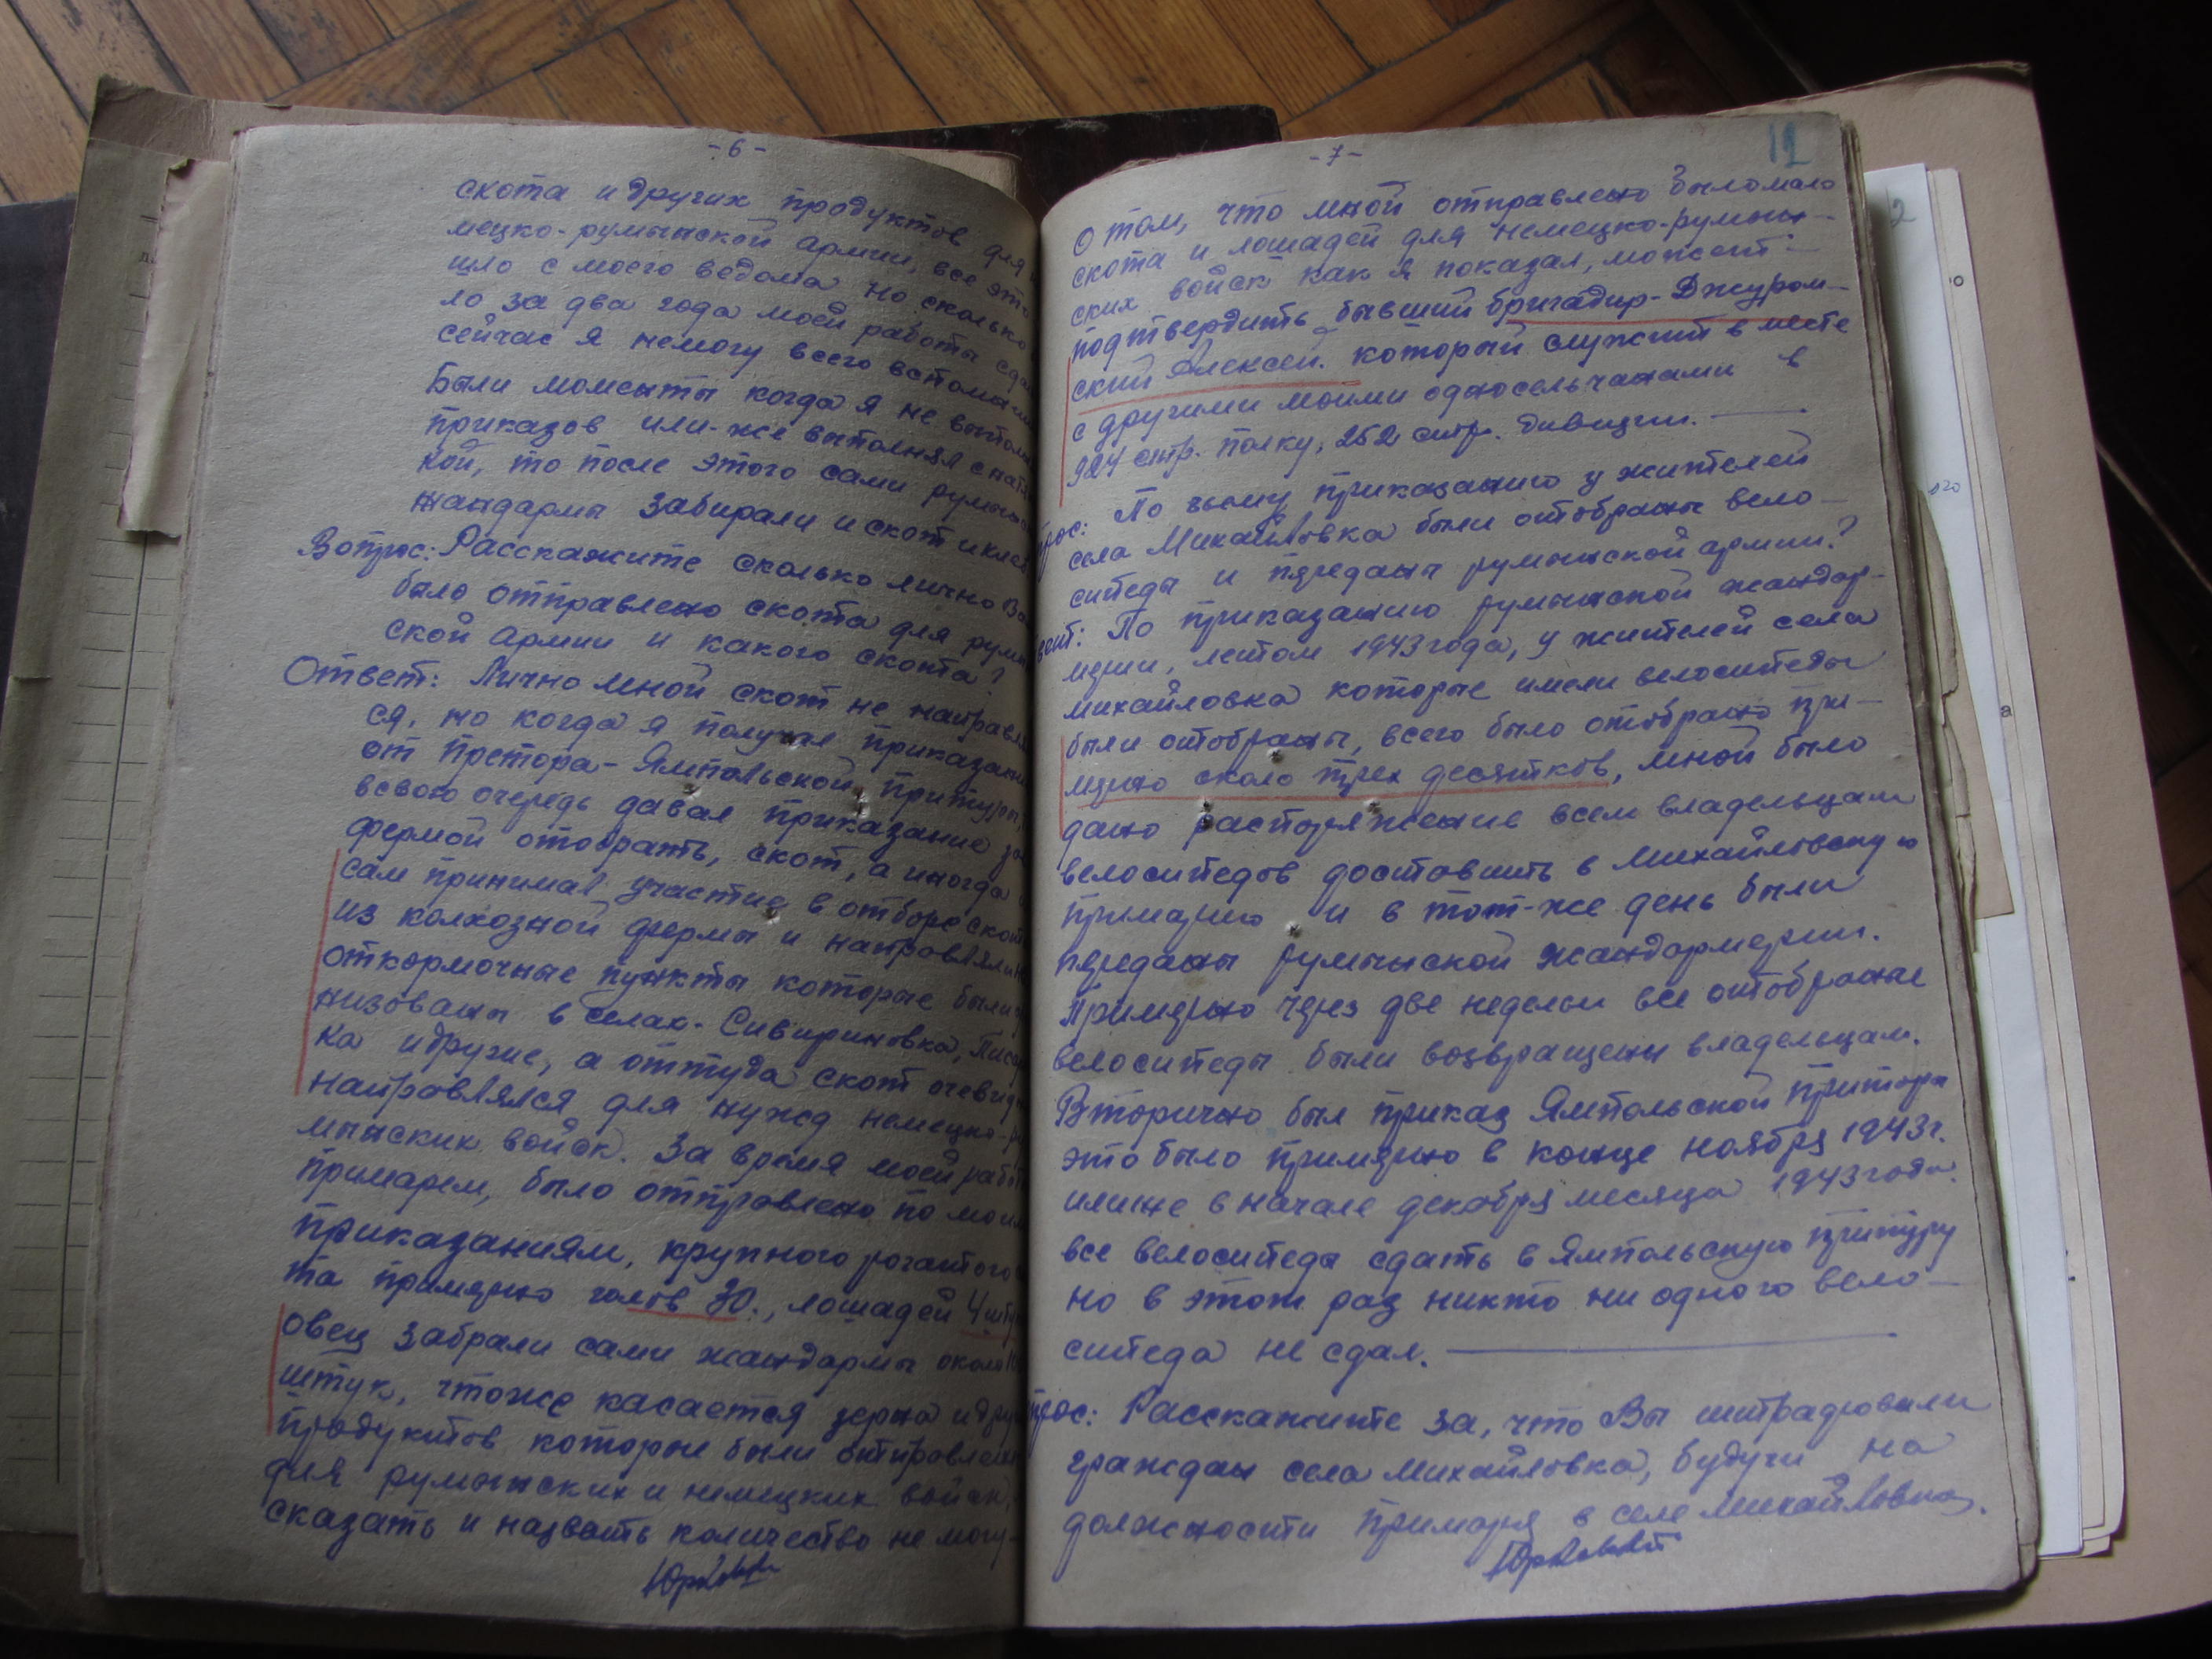 -6-
скота и других продуктов для
мецко-румынской армии, все это
шло с моего ведома но сколько
ло за два года моей работы сда
сейчас я немогу всего вспомни
Были моменты когда я не выпол
приказов или-же выполнял с натя
кой, то после этого сами румын
жандармы забирали и скот и хлеб
Вопрос: Расскажите сколько лично Ва
было отправлено скота для румы
ской армии и какого скота?
Ответ: Лично мной скот не направл
ся, но когда я получал приказани
от претора-Ямпольской притуры,
всвою очередь давал приказание за
фермой отобрать, скот, а иногда
сам принимал участие в отборе скот
из колхозной фермы и направлял
откормочные пункты которые были
низованы в селах-Сивириновка, Писар
ка идругие, а оттуда скот очевид
направлялся для нужд немецко-р
мынских войск. За время моей рабо
примарем, было отправлено по мои
приказаниям, крупного рогатого
та примерно голов 30., лошадей 4 шту
овец забрали сами жандармы около 10
штук, чтоже касается зерна и дру
продуктов которые были отправлен
для румынских и немецких войск,
сказать и назвать количество не могу-
-7-
12
О том, что мной отправлено было мало
скота и лошадей для немецко-румын-
ских войск как я показал, может-
подтвердить бывший бригадир-Джуром-
ский Алексей. который служит в месте
с другими моими односельчанами в
924 стр. полку, 252 стр. дивизии.
рос: По чьему приказанию у жителей
села Михайловка были отобраны вело-
сипеды и переданы румынской армии?
вет: По приказанию румынской жандар-
мерии, летом 1943 года, у жителей села
михайловка которые имели велосипеды
были отобраны, всего было отобрано при-
мерно около трех десятков, мной было
дано распоряжение всем владельцам
велосипедов доставить в Михайловскую
примарию и в тот-же день были
переданы румынской жандармерии.
Примерно через две недели все отобраные
велосипеды были возвращены владельцам.
Вторично был приказ Ямпольской приторы
это было примерно в конце ноября 1943 г.
илиже в начале декабря месяца 1943 года.
все велосипеды сдать в Ямпольскую притуру
но в этот раз никто ни одного вело-
сипеда не сдал.
рос: Расскажите за, что Вы штрафовали
граждан села Михайловка, будучи на
должности примаря в селе Михайловка.